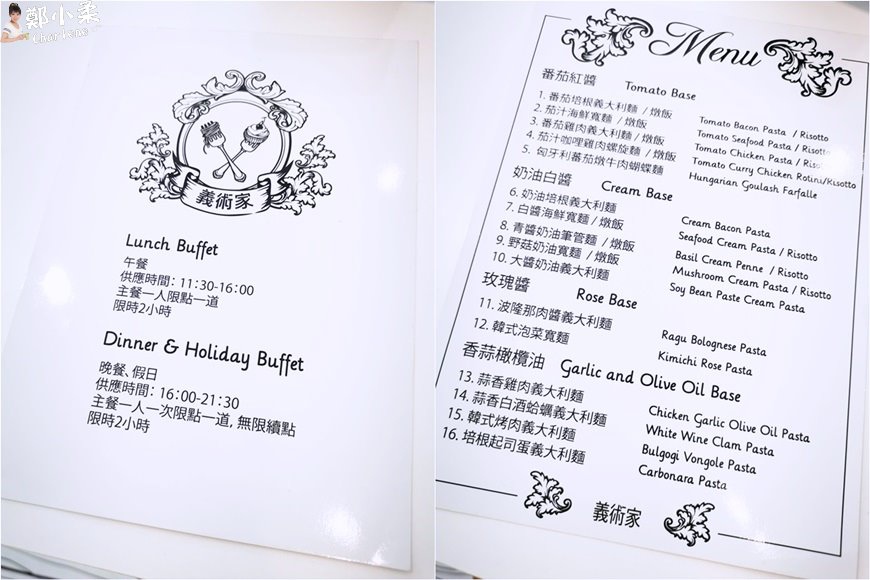 鄭小柔
Charlene
義術家
Lunch Buffet
午餐
供應時間: 11:30-16:00
主餐一人限點一道
限時2小時
Dinner & Holiday Buffet
晚餐、假日
供應時間: 16:00-21:30
主餐一人一次限點一道, 無限續點
限時2小時
Menu
番茄紅醬 Tomato Base
1. 番茄培根義大利麵 / 燉飯 Tomato Bacon Pasta / Risotto
2. 茄汁海鮮寬麵 / 燉飯 Tomato Seafood Pasta / Risotto
3. 番茄雞肉義大利麵 / 燉飯 Tomato Chicken Pasta / Riso
4. 茄汁咖哩雞肉螺旋麵 / 燉飯 Tomato Curry Chicken Rotini/Risotto
5. 匈牙利蕃茄燉牛肉蝴蝶麵 Hungarian Goulash Farfalle
奶油白醬 Cream Base
6. 奶油培根義大利麵 Cream Bacon Pasta
7. 白醬海鮮寬麵 / 燉飯 Seafood Cream Pasta / Risotto
8. 青醬奶油筆管麵 / 燉飯 Basil Cream Penne / Risotto
9. 野菇奶油寬麵 / 燉飯 Mushroom Cream Pasta / Risotto
10. 大醬奶油義大利麵 Soy Bean Paste Cream Pasta
玫瑰醬 Rose Base
11. 波隆那肉醬義大利麵 Ragu Bolognese Pasta
12. 韓式泡菜寬麵 Kimichi Rose Pasta
香蒜橄欖油 Garlic and Olive Oil Base
13. 蒜香雞肉義大利麵 Chicken Garlic Olive Oil Pasta
14. 蒜香白酒蛤蠣義大利麵 White Wine Clam Pasta
15. 韓式烤肉義大利麵 Bulgogi Vongole Pasta
16. 培根起司蛋義大利麵 Carbonara Pasta
義術家